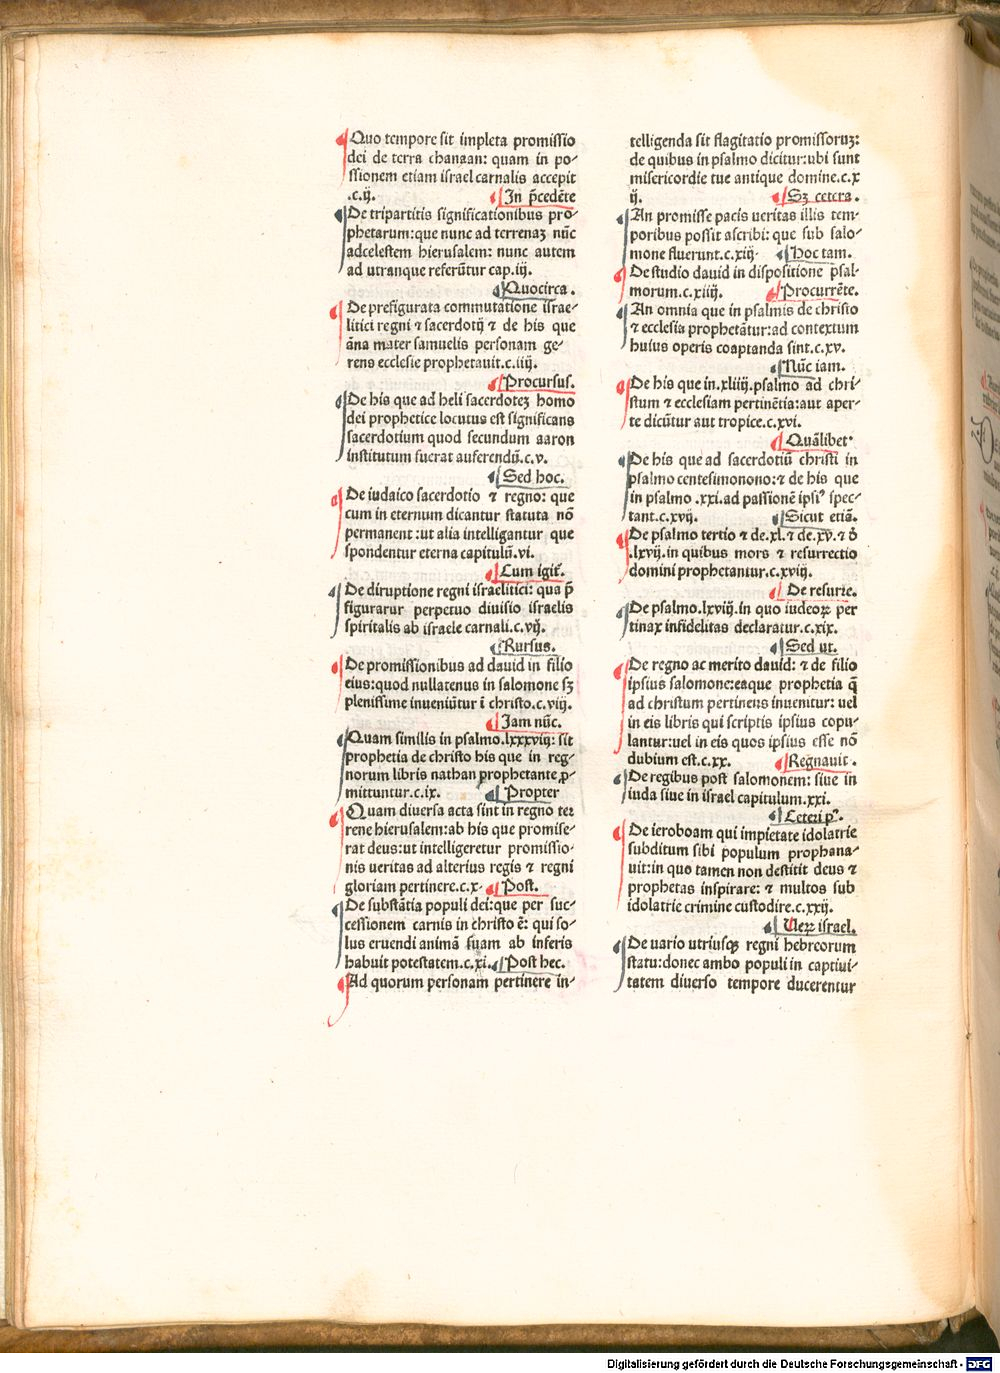 Quo tempore sit impleta promissio
dei de terra chanaan: quam in po-
ssionem etiam israel carnalis accepit
.c.ij. In p̄cedēte
De tripartitis significationibus pro-
phetarum:que nunc ad terrenaȝ nūc
adcelestem hierusalem: nunc autem
ad utranque referūtur cap.iij.
Quocirca.
De prefigurata commutatione israe-
litici regni ⁊ sacerdotij ⁊ de his que
āna mater samuelis personam ge-
rens ecclesie prophetauit.c.iiij.
Procursus.
De his que ad heli sacerdoteȝ homo
dei prophetice locutus est significans
sacerdotium quod secundum aaron
institutum fuerat auferendū.c.v.
Sed hoc.
De iudaico sacerdotio ⁊ regno: que
cum in eternum dicantur statuta nō
permanent :ut alia intelligantur que
spondentur eterna capitulū.vi.
Cum igit̄.
De diruptione regni israelitici: qua p̄
figurarur perpetuo diuisio israelis
spiritalis ab israele carnali.c.vij.
Rursus.
De promissionibus ad dauid in filio
eius:quod nullatenus in salomone sȝ
plenissime inueniūtur ī christo.c.viij.
Jam nūc.
Quam similis in psalmo.lxxxviij: sit
prophetia de christo his que in reg-
norum libris nathan prophetante ꝓ-
mittuntur.c.ix. Propter
Quam diuersa acta sint in regno ter
rene hierusalem:ab his que promise-
rat deus:ut intelligeretur promissio-
nis ueritas ad alterius regis ⁊ regni
gloriam pertinere.c.x. Post.
De substātia populi dei:que per suc-
cessionem carnis in christo ē: qui so-
lus eruendi animā suam ab inferis
habuit potestatem.c.xi. Post hec.
Ad quorum personam pertinere in-
telligenda sit flagitatio promissoruȝ:
de quibus in psalmo dicitur:ubi sunt
misericordie tue antique domine.c.x
ij. Sȝ cetera.
An promisse pacis ueritas illis tem-
poribus possit ascribi: que sub salo-
mone fluerunt.c.xiij. Hoc tam.
De studio dauid in dispositione psal-
morum.c.xiiij. Procurrēte.
An omnia que in psalmis de christo
⁊ ecclesia prophetātur:ad contextum
huius operis coaptanda sint.c.xv.
Nūc iam.
De his que in.xliiij.psalmo ad chri-
stum ⁊ ecclesiam pertinētia:aut aper-
te dicūtur aut tropice.c.xvi.
Quālibet.
De his que ad sacerdotiū christi in
psalmo centesimonono:⁊ de his que
in psalmo .xxi.ad passionē ipsiꝰ spec-
tant.c.xvij. Sicut etiā.
De psalmo tertio ⁊ de.xl.⁊ de.xv.⁊ d̄
.lxvij.in quibus mors ⁊ resurrectio
domini prophetantur.c.xviij.
De resurre.
De psalmo.lxviij.in quo iudeoꝝ per
tinax infidelitas declaratur.c.xix.
Sed ut.
De regno ac merito dauid: ⁊ de filio
ipsius salomone:eaque prophetia q̄
ad christum pertinens inuenitur: uel
in eis libris qui scriptis ipsius copu-
lantur:uel in eis quos ipsius esse nō
dubium est.c.xx. Regnauit.
De regibus post salomonem: siue in
iuda siue in israel capitulum.xxi.
Ceteri pꝰ.
De ieroboam qui impietate idolatrie
subditum sibi populum prophana-
uit:in quo tamen non destitit deus ⁊
prophetas inspirare: ⁊ multos sub
idolatrie crimine custodire.c.xxij.
Ueꝝ israel.
De uario utriusqȝ regni hebreorum
statu:donec ambo populi in captiui-
tatem diuerso tempore ducerentur
Digitalisierung gefördert durch die Deutsche Forschungsgemeinschaft - DFG